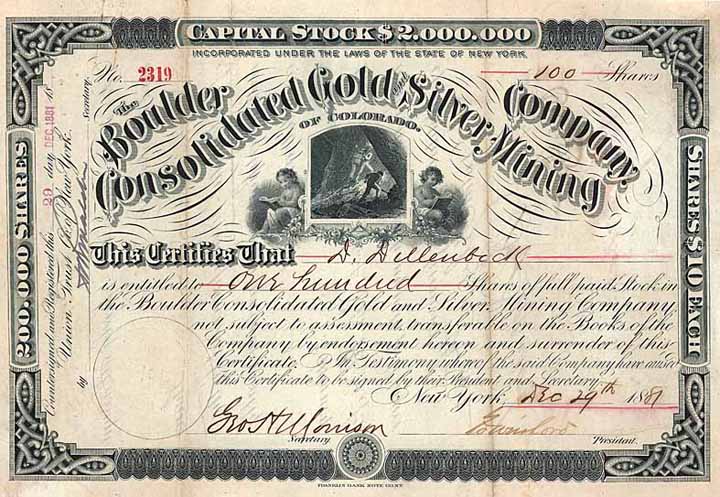 CAPITAL STOCK $2,000,000
INCORPORATED UNDER THE LAWS OF THE STATE OF NEW YORK.
No. 2319
100 Shares
The Boulder Consolidated Gold and Silver Mining Company
OF COLORADO.
This Certifies That D. Dillenbeck
is entitled to One hundred Shares of full paid Stock in
the Boulder Consolidated Gold and Silver Mining Company,
not subject to assessment, transferable on the Books of the
Company by endorsement hereon and surrender of this
Certificate. In Testimony whereof the said Company have caused
this Certificate to be signed by their President and Secretary.
New York, Dec 29th 1881
Geo H Morrison
Secretary
President.
200,000 SHARES
SHARES $10 EACH
Countersigned and Registered this 29 day DEC 1881 18
Union Trust Co. of New York.
by
Secretary.
FRANKLIN BANK NOTE COMPY.